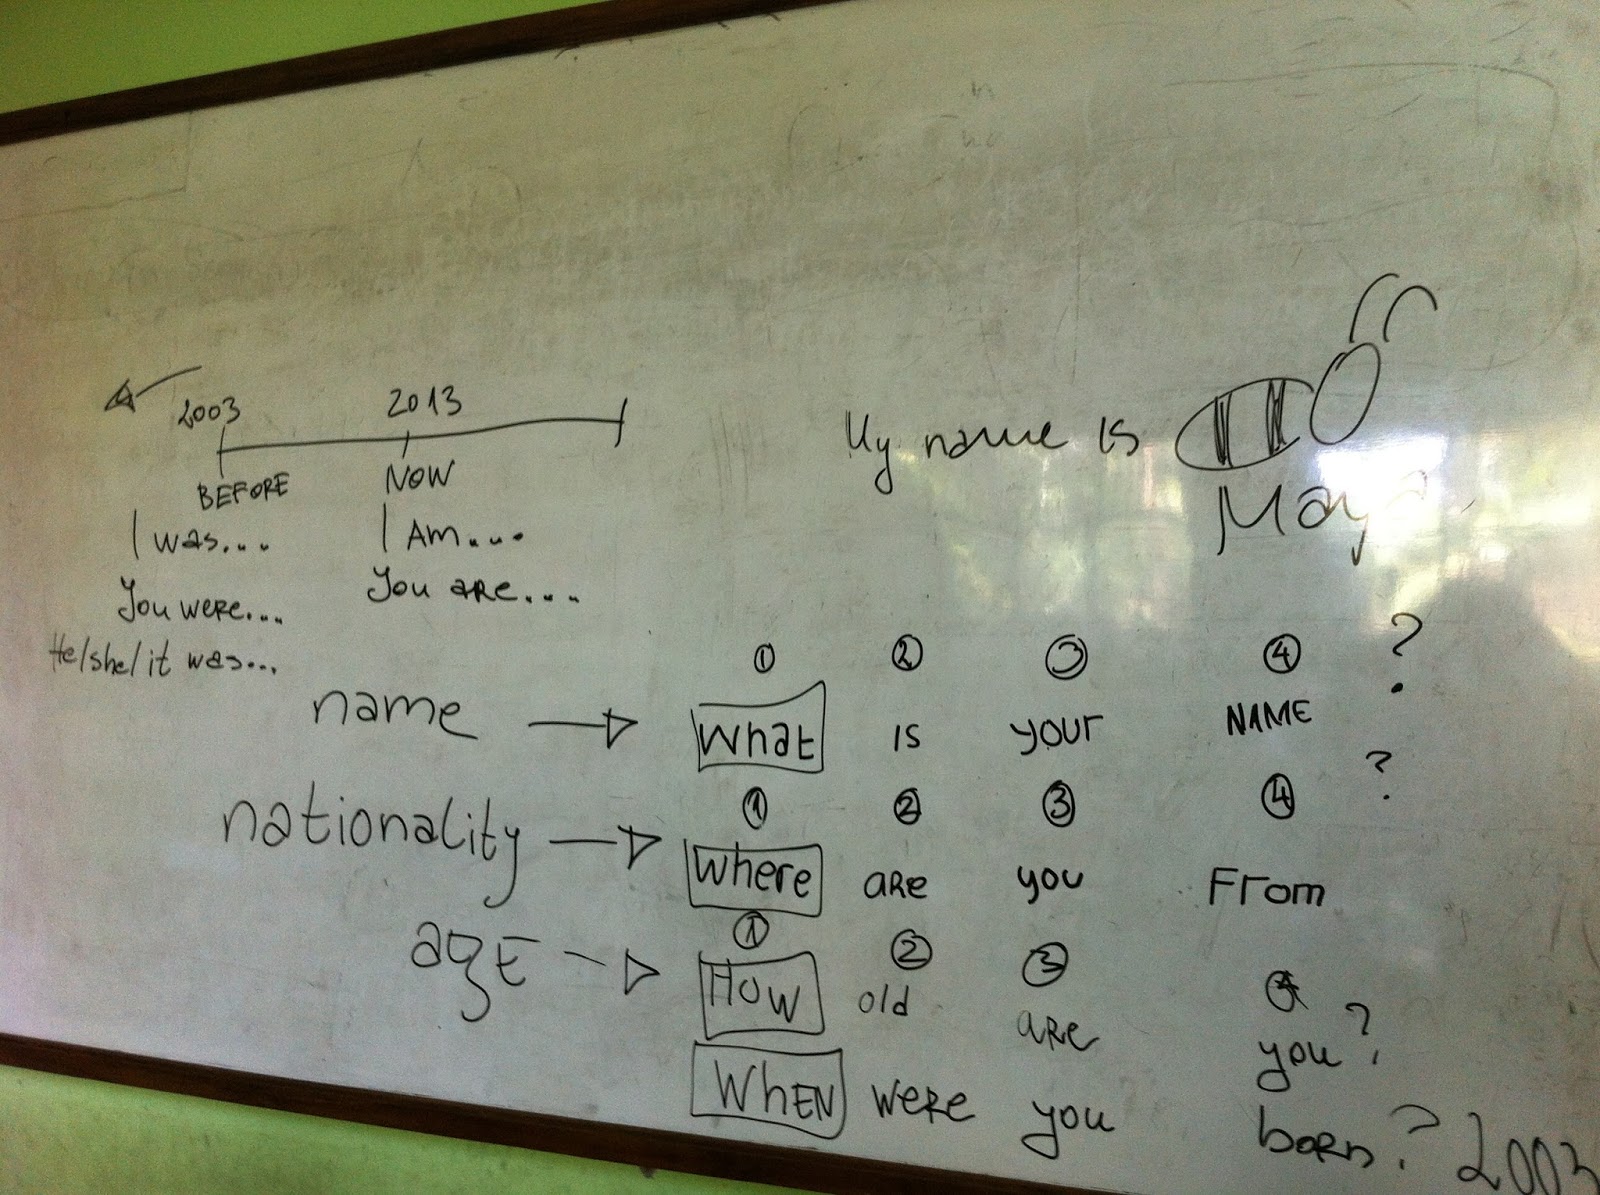 2003 2013
BEFORE NOW
I was.... I Am....
You were... You are....
He/she/it was...
My name is
Maya
① ② ③ ④ ?
name → What is your NAME
① ② ③ ④ ?
nationality → Where are you From
① ② ③ ④
agE → How old are you?
WhEN were you born? 2003